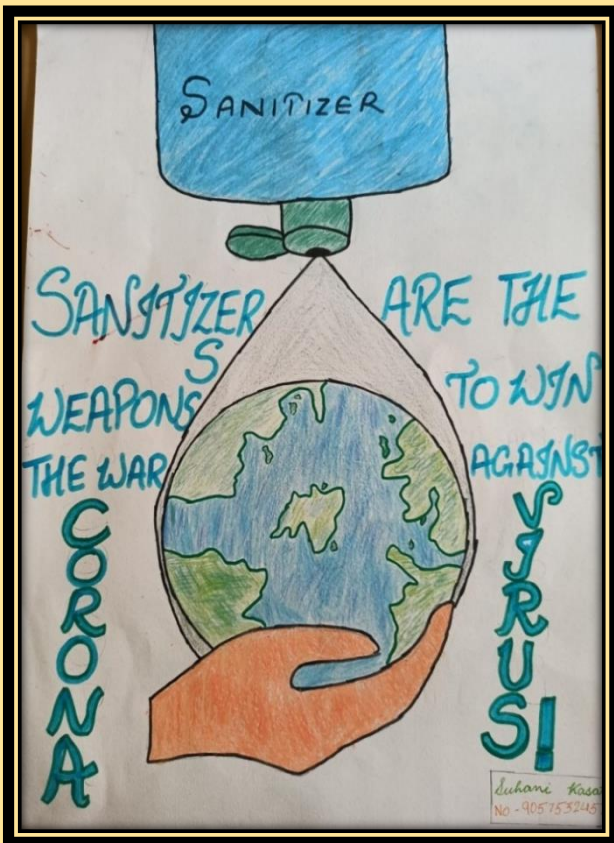 SANITIZER
SANITIZER ARE THE
S
WEAPONS TO WIN
THE WAR AGAINST
CORONA
VIRUS!
Suhani
NO - 905753245